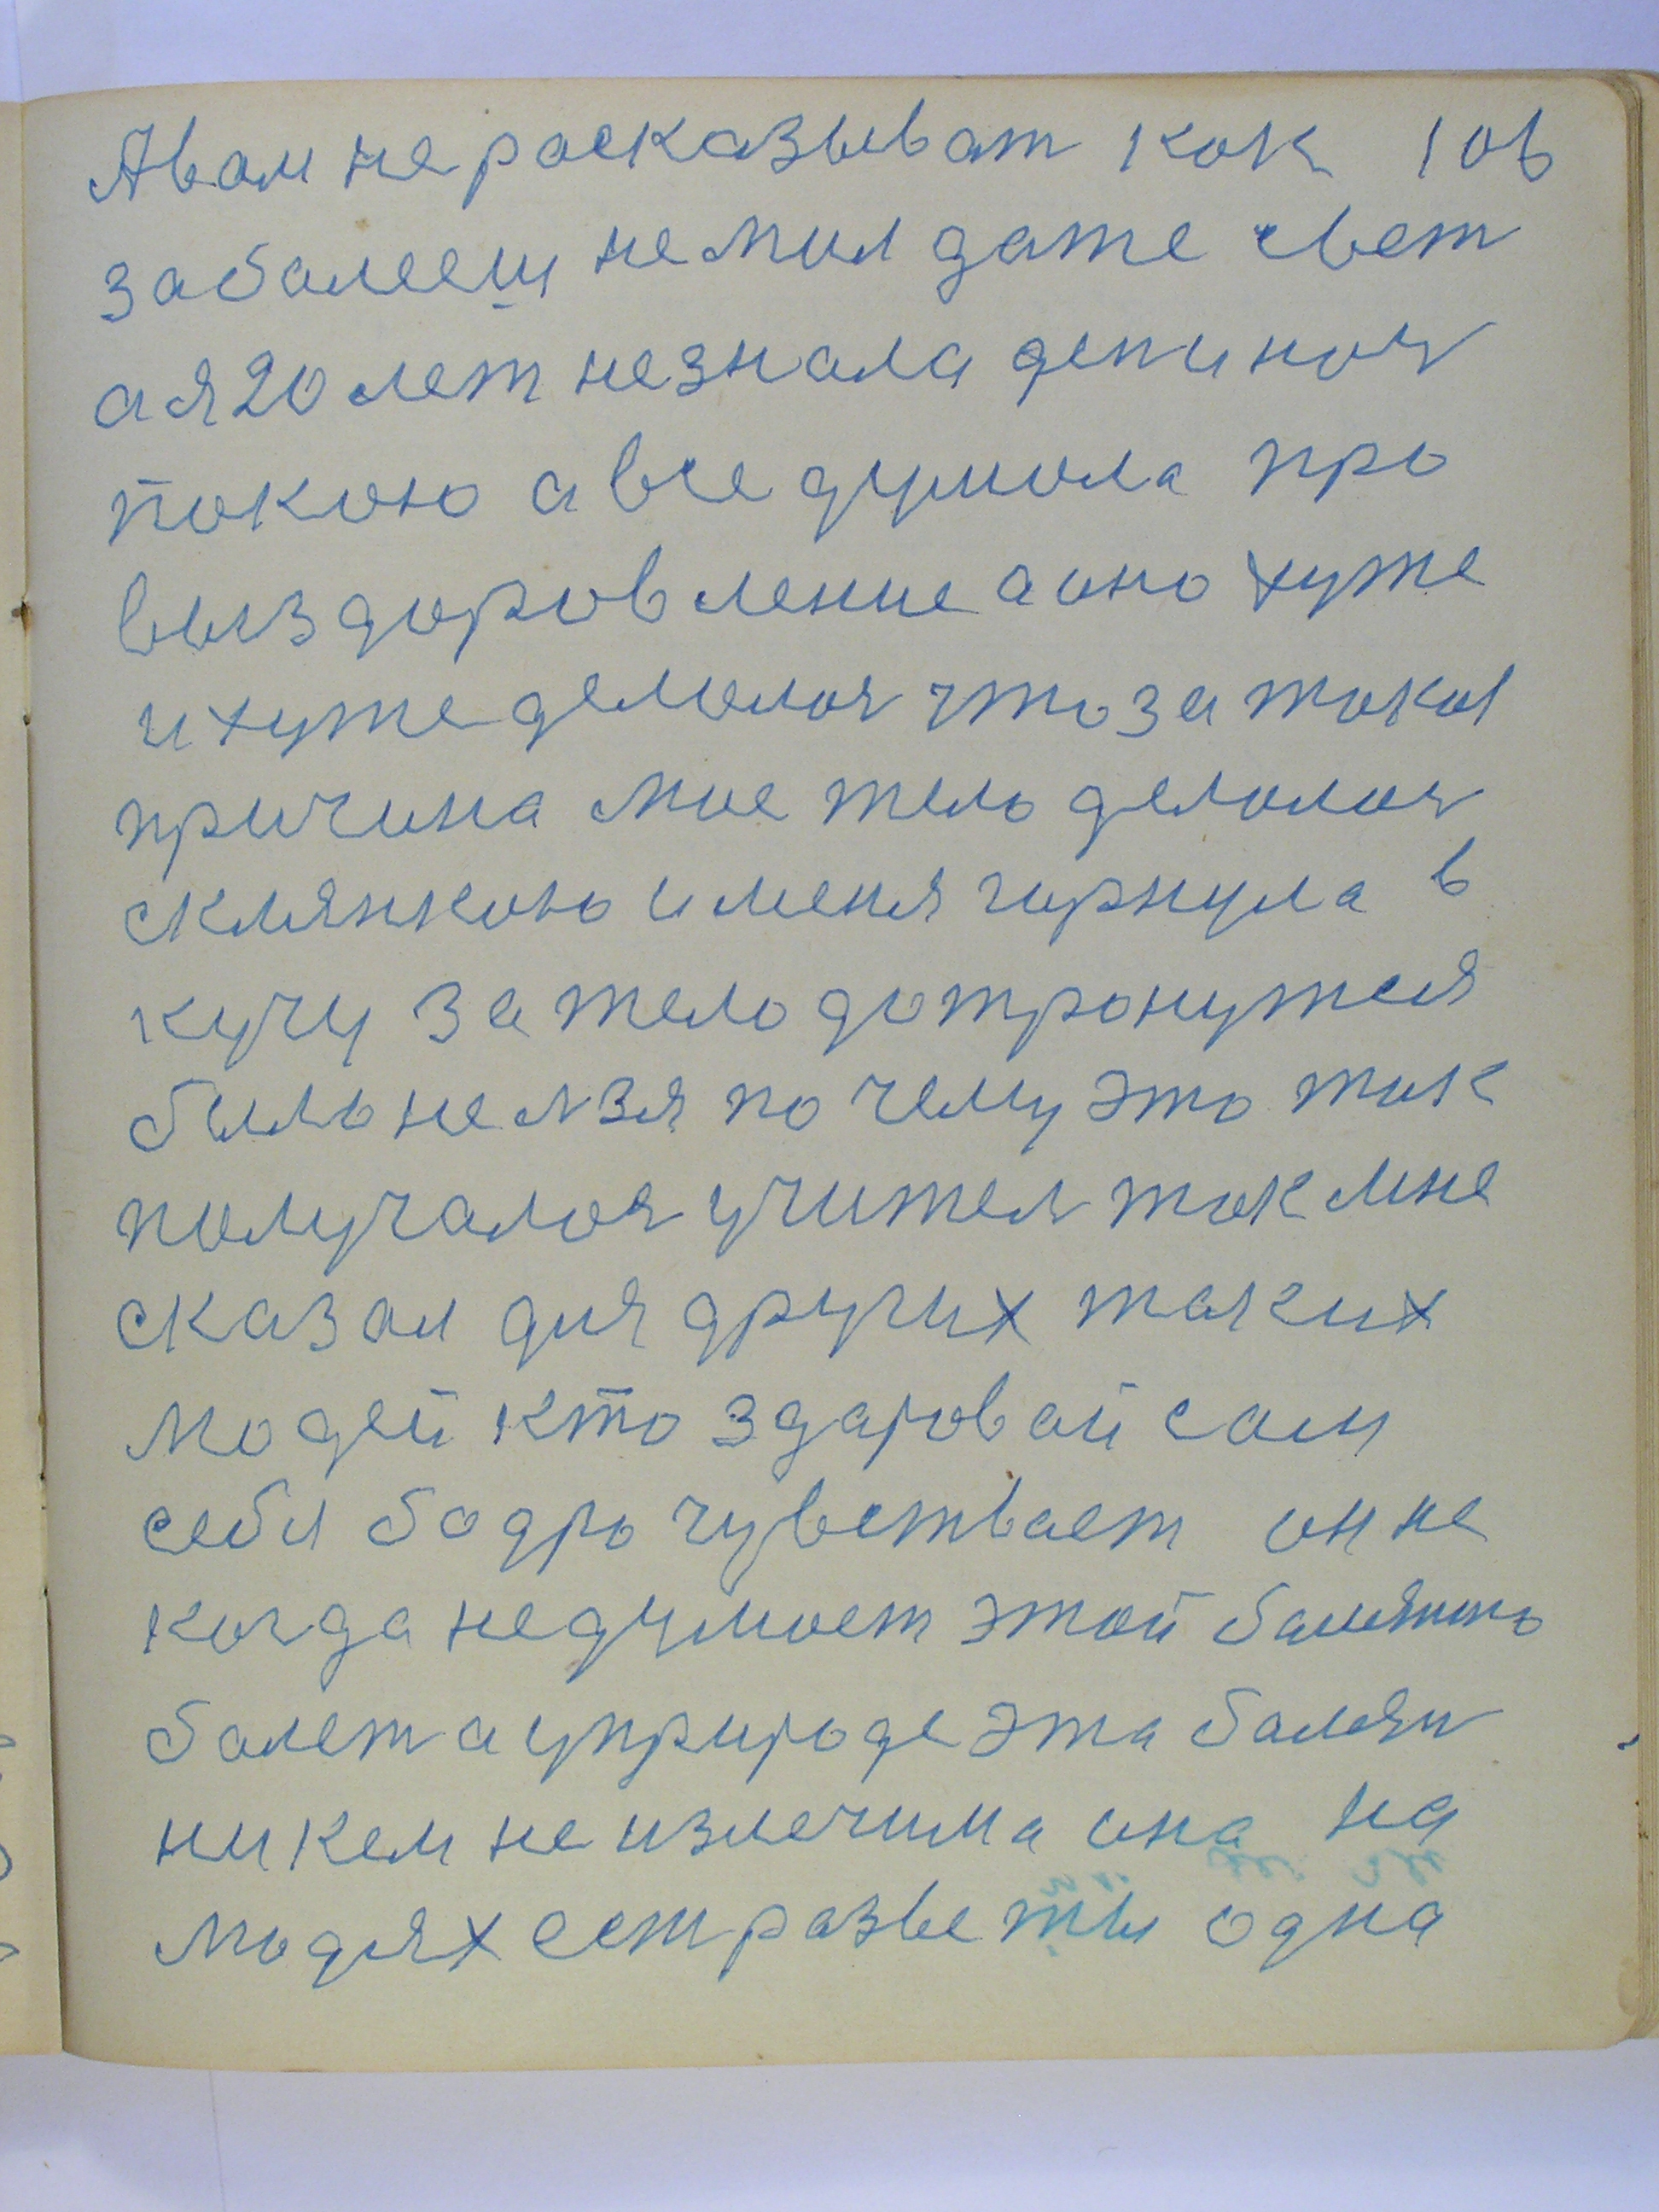 А вам не расказыват как 106
забалееш не мил даже свет
а я 20 лет незнала ден и ноч
покою а все думала про
выздоровление а оно хуже
и хуже делолоя что за такая
причина мое тело делолоя
склянкою и меня горнула в
кучу за тело дотронутся
было нелзя почему это так
получалоя учител так мне
сказал для других таких
людей кто здаровай сам
себя бодро чувствает он не
когда недумает этой
болет а у природе эта балезн
никем не излечима она на
людях ест разве ты одна